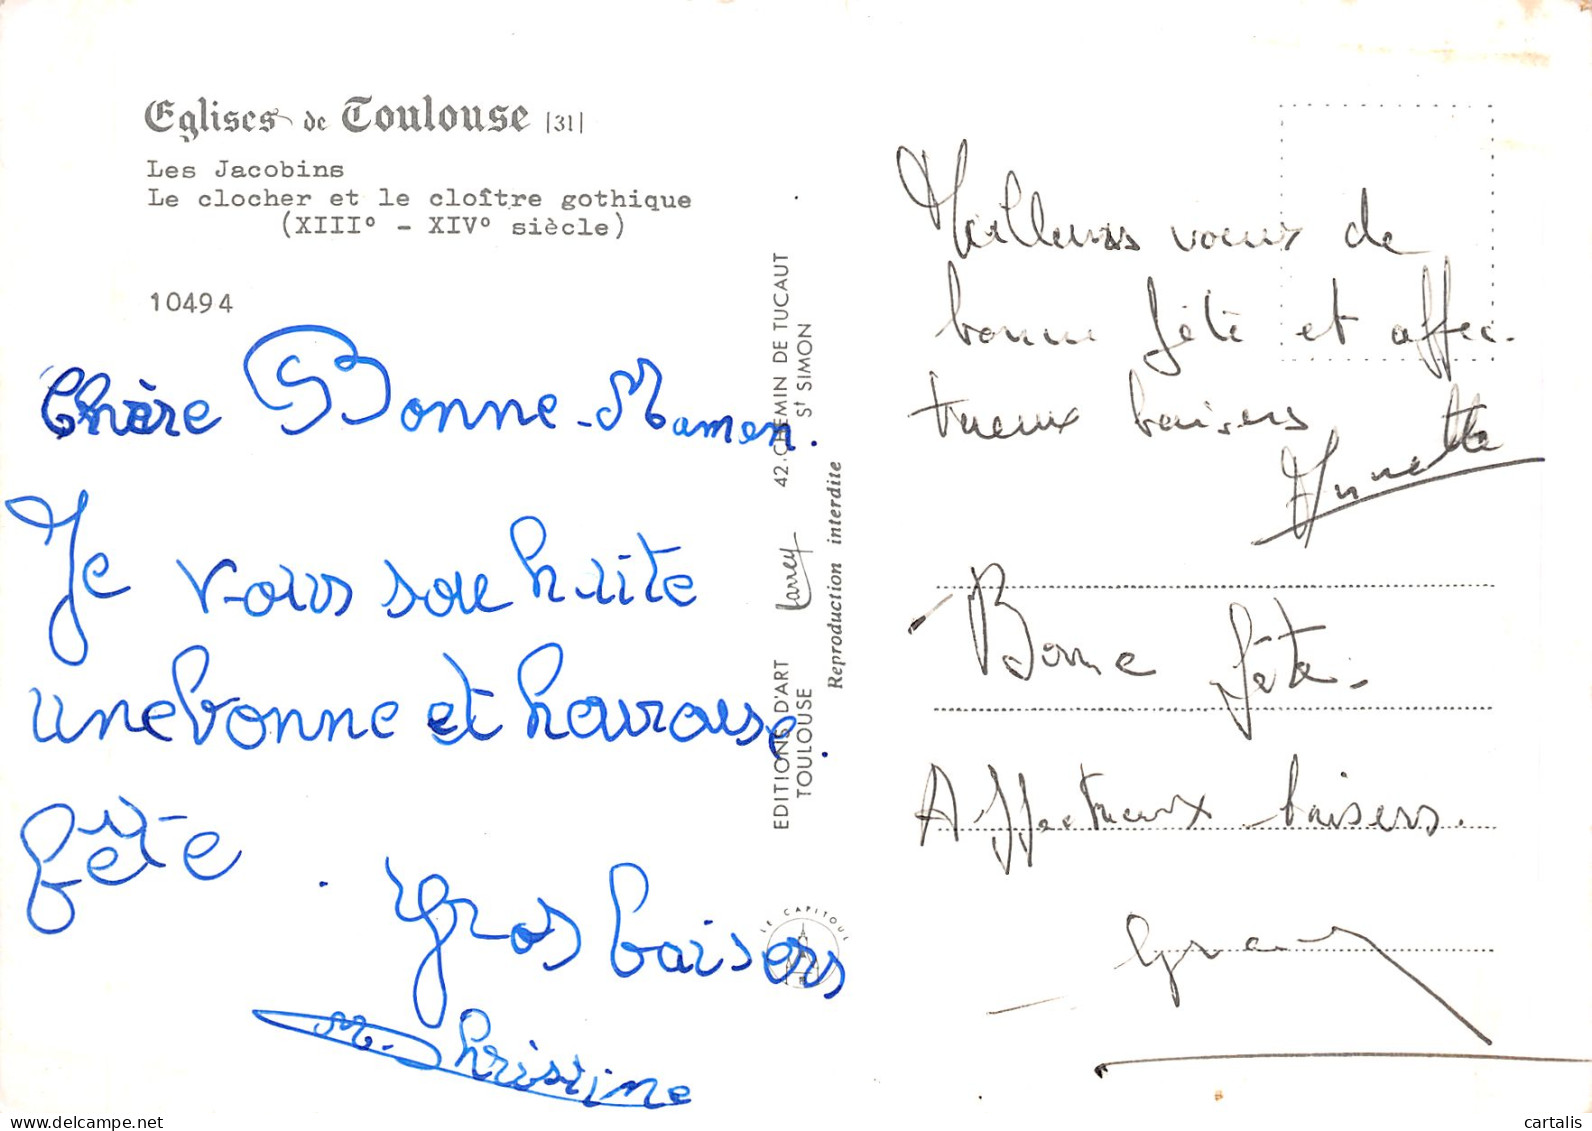 Eglises de Toulouse |31|
Les Jacobins
Le clocher et le cloître gothique
(XIII° - XIV° siècle)
10494
Chère Bonne-Maman.
Je vous souhaite
une bonne et heureuse
fête. Gros baisers
M. Christine
EDITIONS D'ART Larrey 42. CHEMIN DE TUCAUT
TOULOUSE St SIMON
Reproduction interdite
LE CAPITOUL
Meilleurs voeux de
bonne fête et affec-
tueux baisers
Annette
Bonne fête.
Affectueux baisers.
cartalis